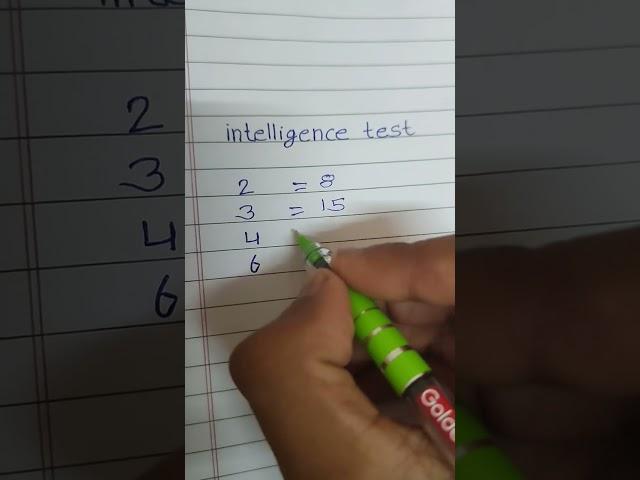 intelligence test
2 = 8
3 = 15
4
6